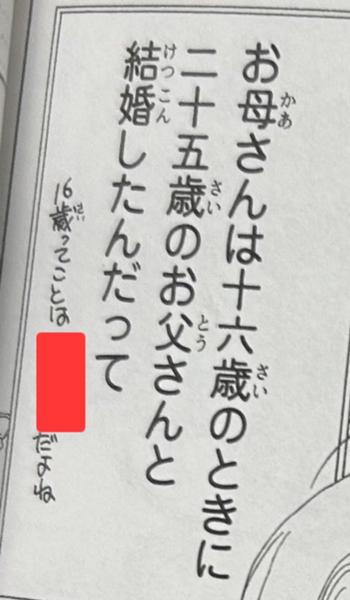 お母さんは十六歳のときに
二十五歳のお父さんと
結婚したんだって
16歳ってことは
だよね